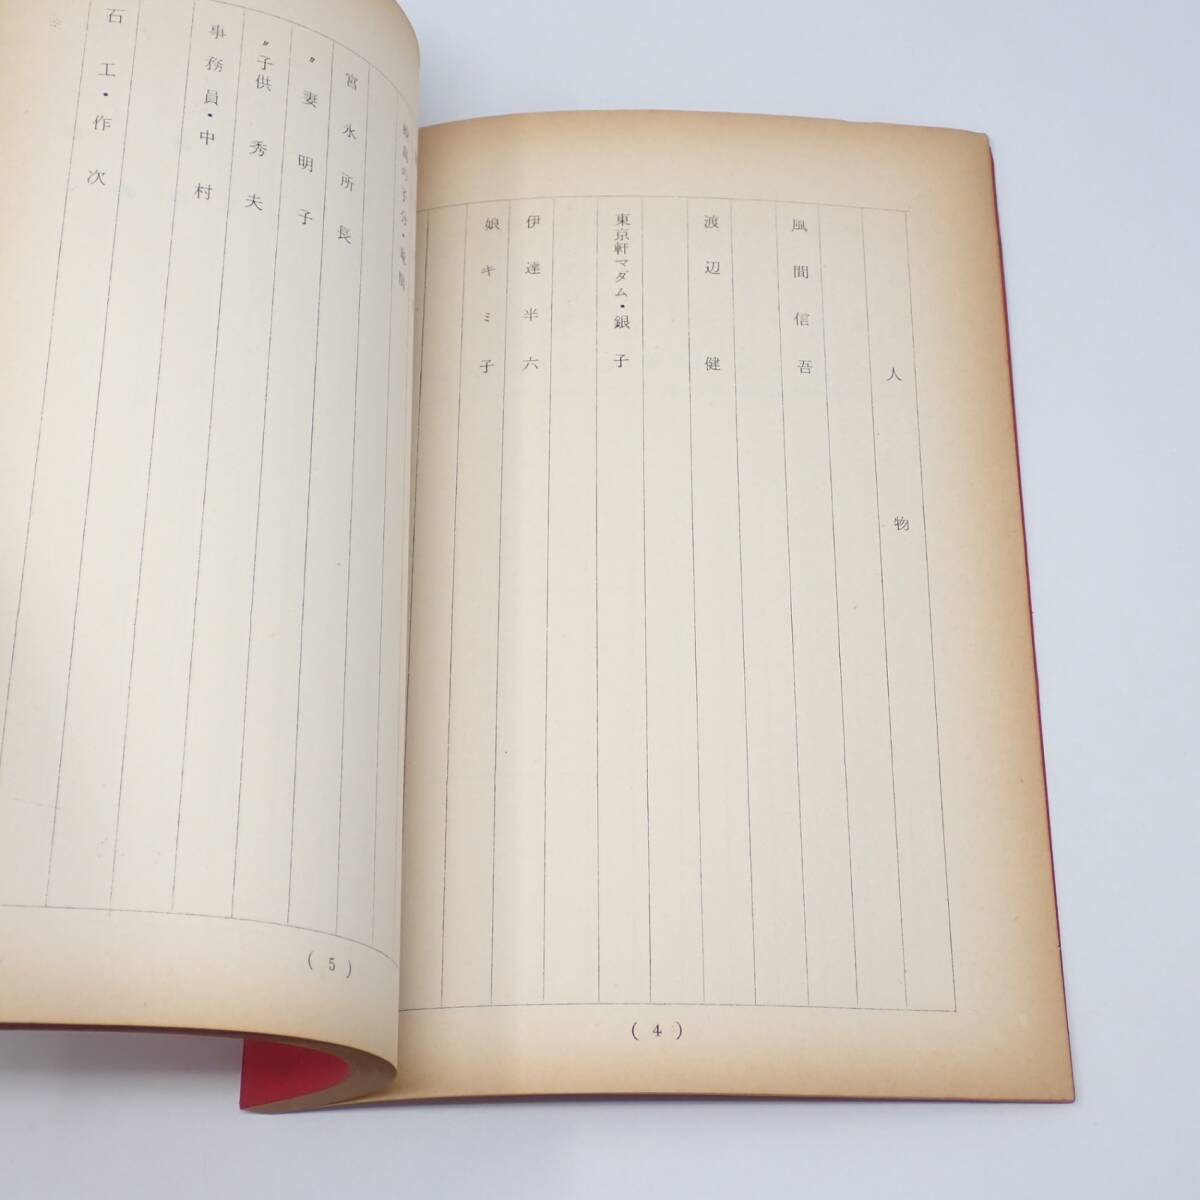 人物
風間信吾
渡辺健
東京軒マダム・銀子
伊達半六
娘キミ子
(4)
宮永所長
〃妻明子
〃子供秀夫
事務員・中村
石工・作次
(5)